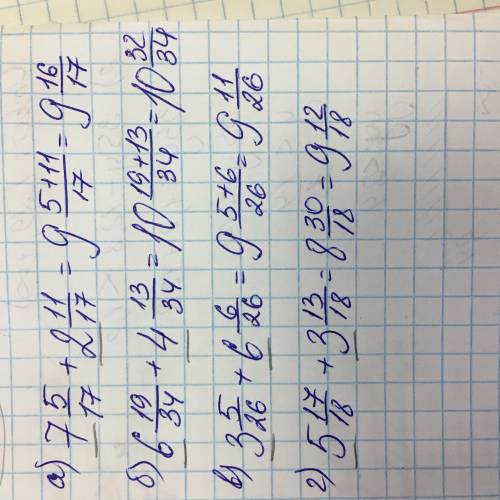 а) 7 5/17 + 2 11/17 = 9 (5+11)/17 = 9 16/17
б) 6 19/34 + 4 13/34 = 10 (19+13)/34 = 10 32/34
в) 3 5/26 + 6 6/26 = 9 (5+6)/26 = 9 11/26
г) 5 17/18 + 3 13/18 = 8 30/18 = 9 12/18